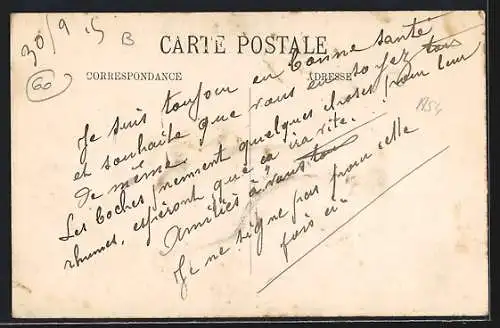 30/9 15
B
60
CARTE POSTALE
CORRESPONDANCE
ADRESSE
1854
Je suis toujour en bonne santé
et souhaite que vous en soyez tous
de même.
Les Boches prennent quelques choses pour leur
rhumes, espéront que ça ira vite.
Amitiés à vous tous
Je ne signe pas pour cette
fois ci